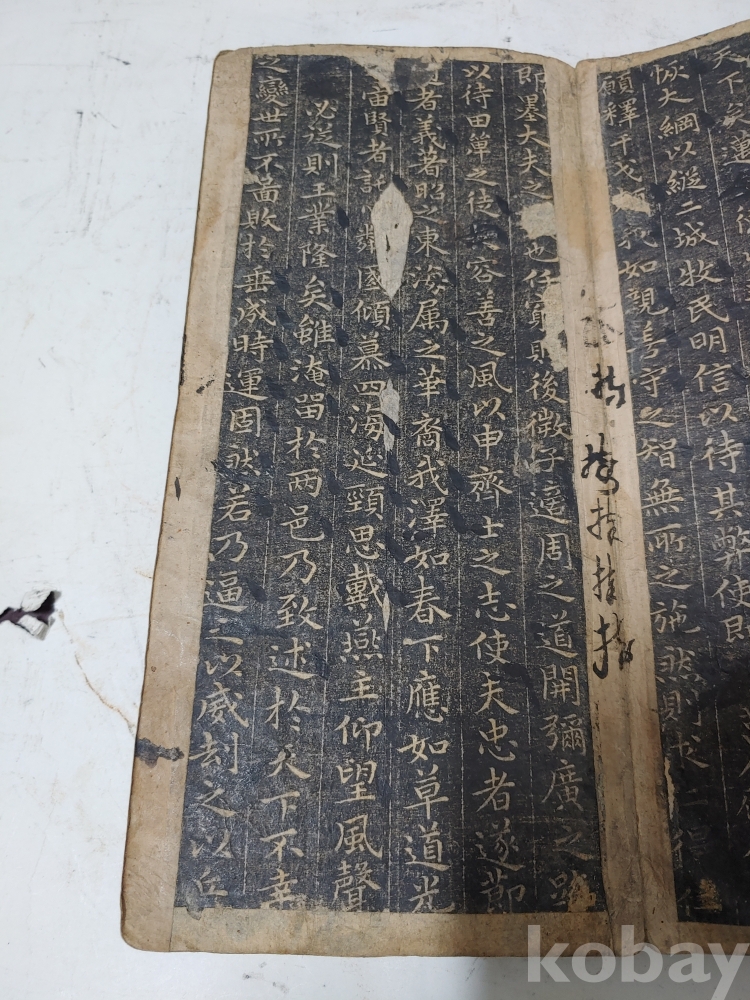 天下矣邁
恢大綱以縱二城牧民明信以待其弊使即
顧釋干戈我如親善守之智無所之施然則求仁得仁
即墨大夫之也任窮則後微子適周之道開彌廣之路
以待田單之徒長容善之風以申齊士之志使夫忠者遂節
者義著昭之東海属之華裔我澤如春下應如草道光
宙賢者託心鄰國傾慕四海延頸思戴燕主仰望風聲
必從則王業隆矣雖淹留於兩邑乃致述於天下不幸
之變世所不啚敗於垂成時運固然若乃逼之以威劫之以兵
kobay